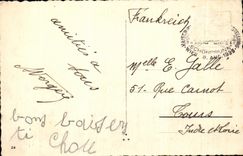 amitié à
tous
bons baisers
ti
Frankreich
Mlle E. Galle
51 - Rue Carnot
Tours
Indre et Loire